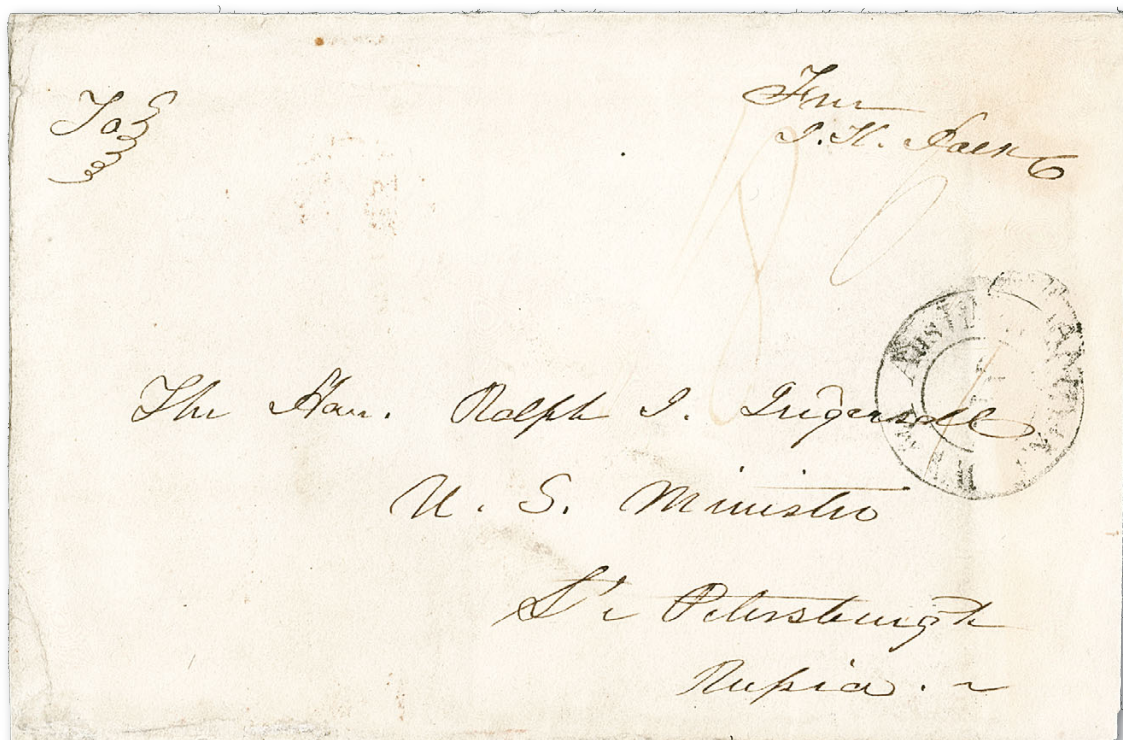 To
Free
J. K. Polk
The Hon. Ralph I. Ingersoll
U. S. Minister
St. Petersburgh
Russia.